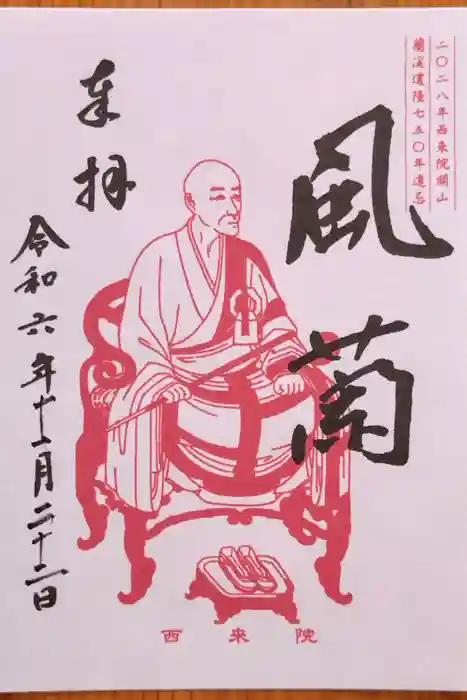 二〇二八年西来院開山
蘭渓道隆七五〇年遠忌
風蘭
奉拝
令和六年十一月二十二日
西来院